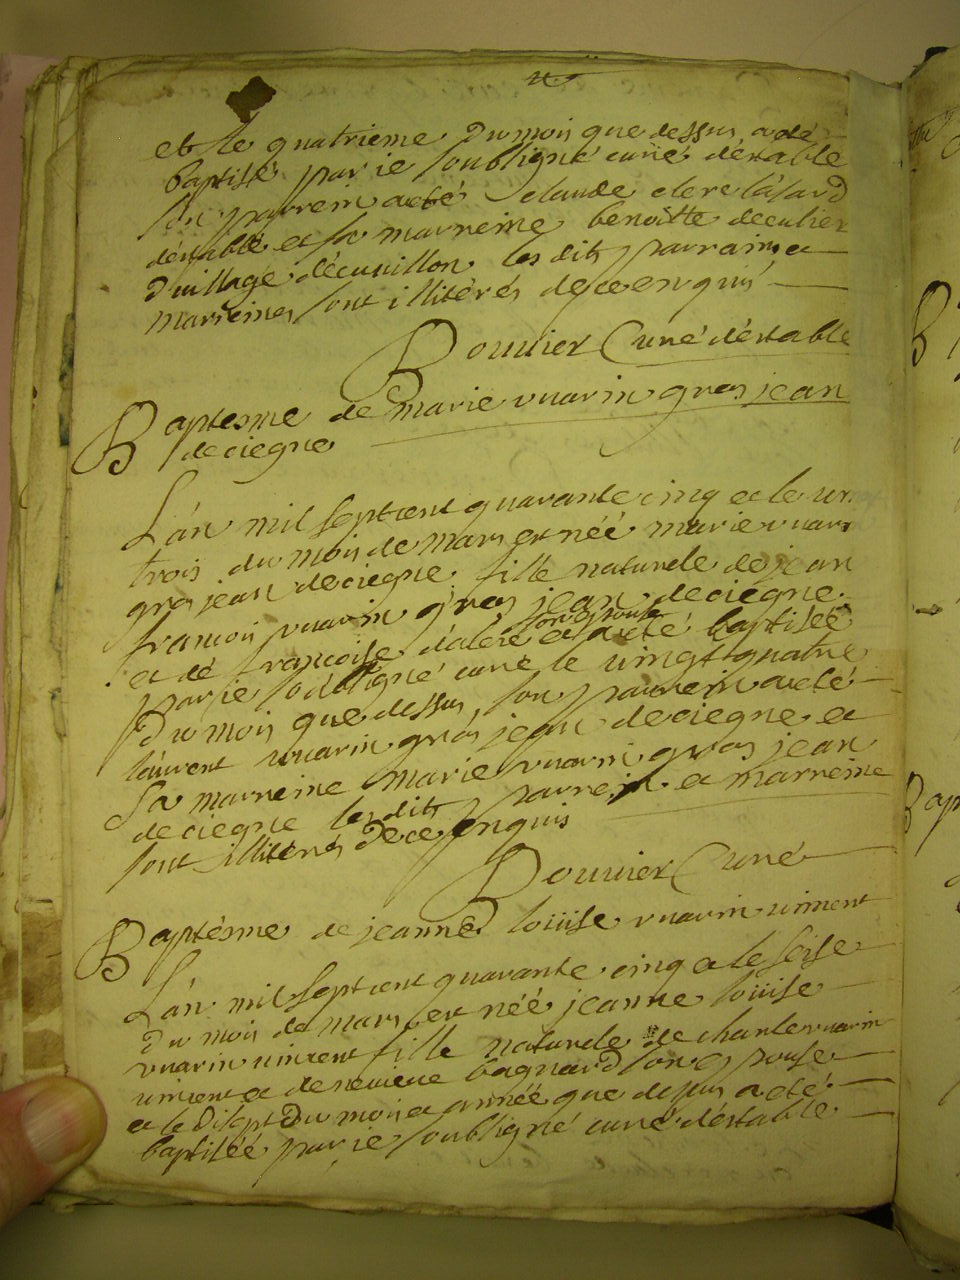 et le quatrieme du mois que dessus a été
baptisé par ie soubsigné curé déstable
son parrein a eté claude clerc lásard
déstable et sa marreine benoitte deculier
du village décusillon les dits parrains et
marreines sont illiterés de ce enquis
Bouvier Curé déstable
Baptesme de marie vuarin gros jean
de ciegne
Lán mil sept cent quarante cinq et le
trois du mois de mars est née marie vuarin
gros jean de ciegne fille naturele de jean
francois vuarin gros jean de ciegne
et de francoise son espouse et a eté baptisée
par ie soubsigné curé le vingt quatre
du mois que dessus son parrein a eté
laurent vuarin gros jean de ciegne et
sa marreine marie vuarin gros jean
de ciegne les dits parrein et marreine
sont illiterés de ce enquis
Bouvier Curé
Baptésme de jeanne louise vuarin vincent
Lán mil sept cent quarante cinq et le seise
du mois de mars est née jeanne louise
vuarin vincent fille naturele de charle vuarin
vincent et de nevieve bagnard son espouse
et le disept du mois et année que dessus a eté
baptisée par ie soubsigné curé déstable